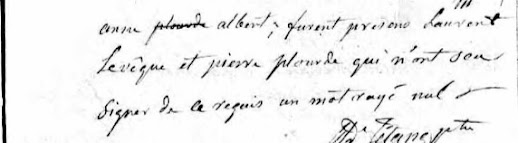 anne plourde albert; furent presens Laurent
Levêque et pierre plourde qui n'ont seu
signer de ce requis un mot rayé nul
ptre